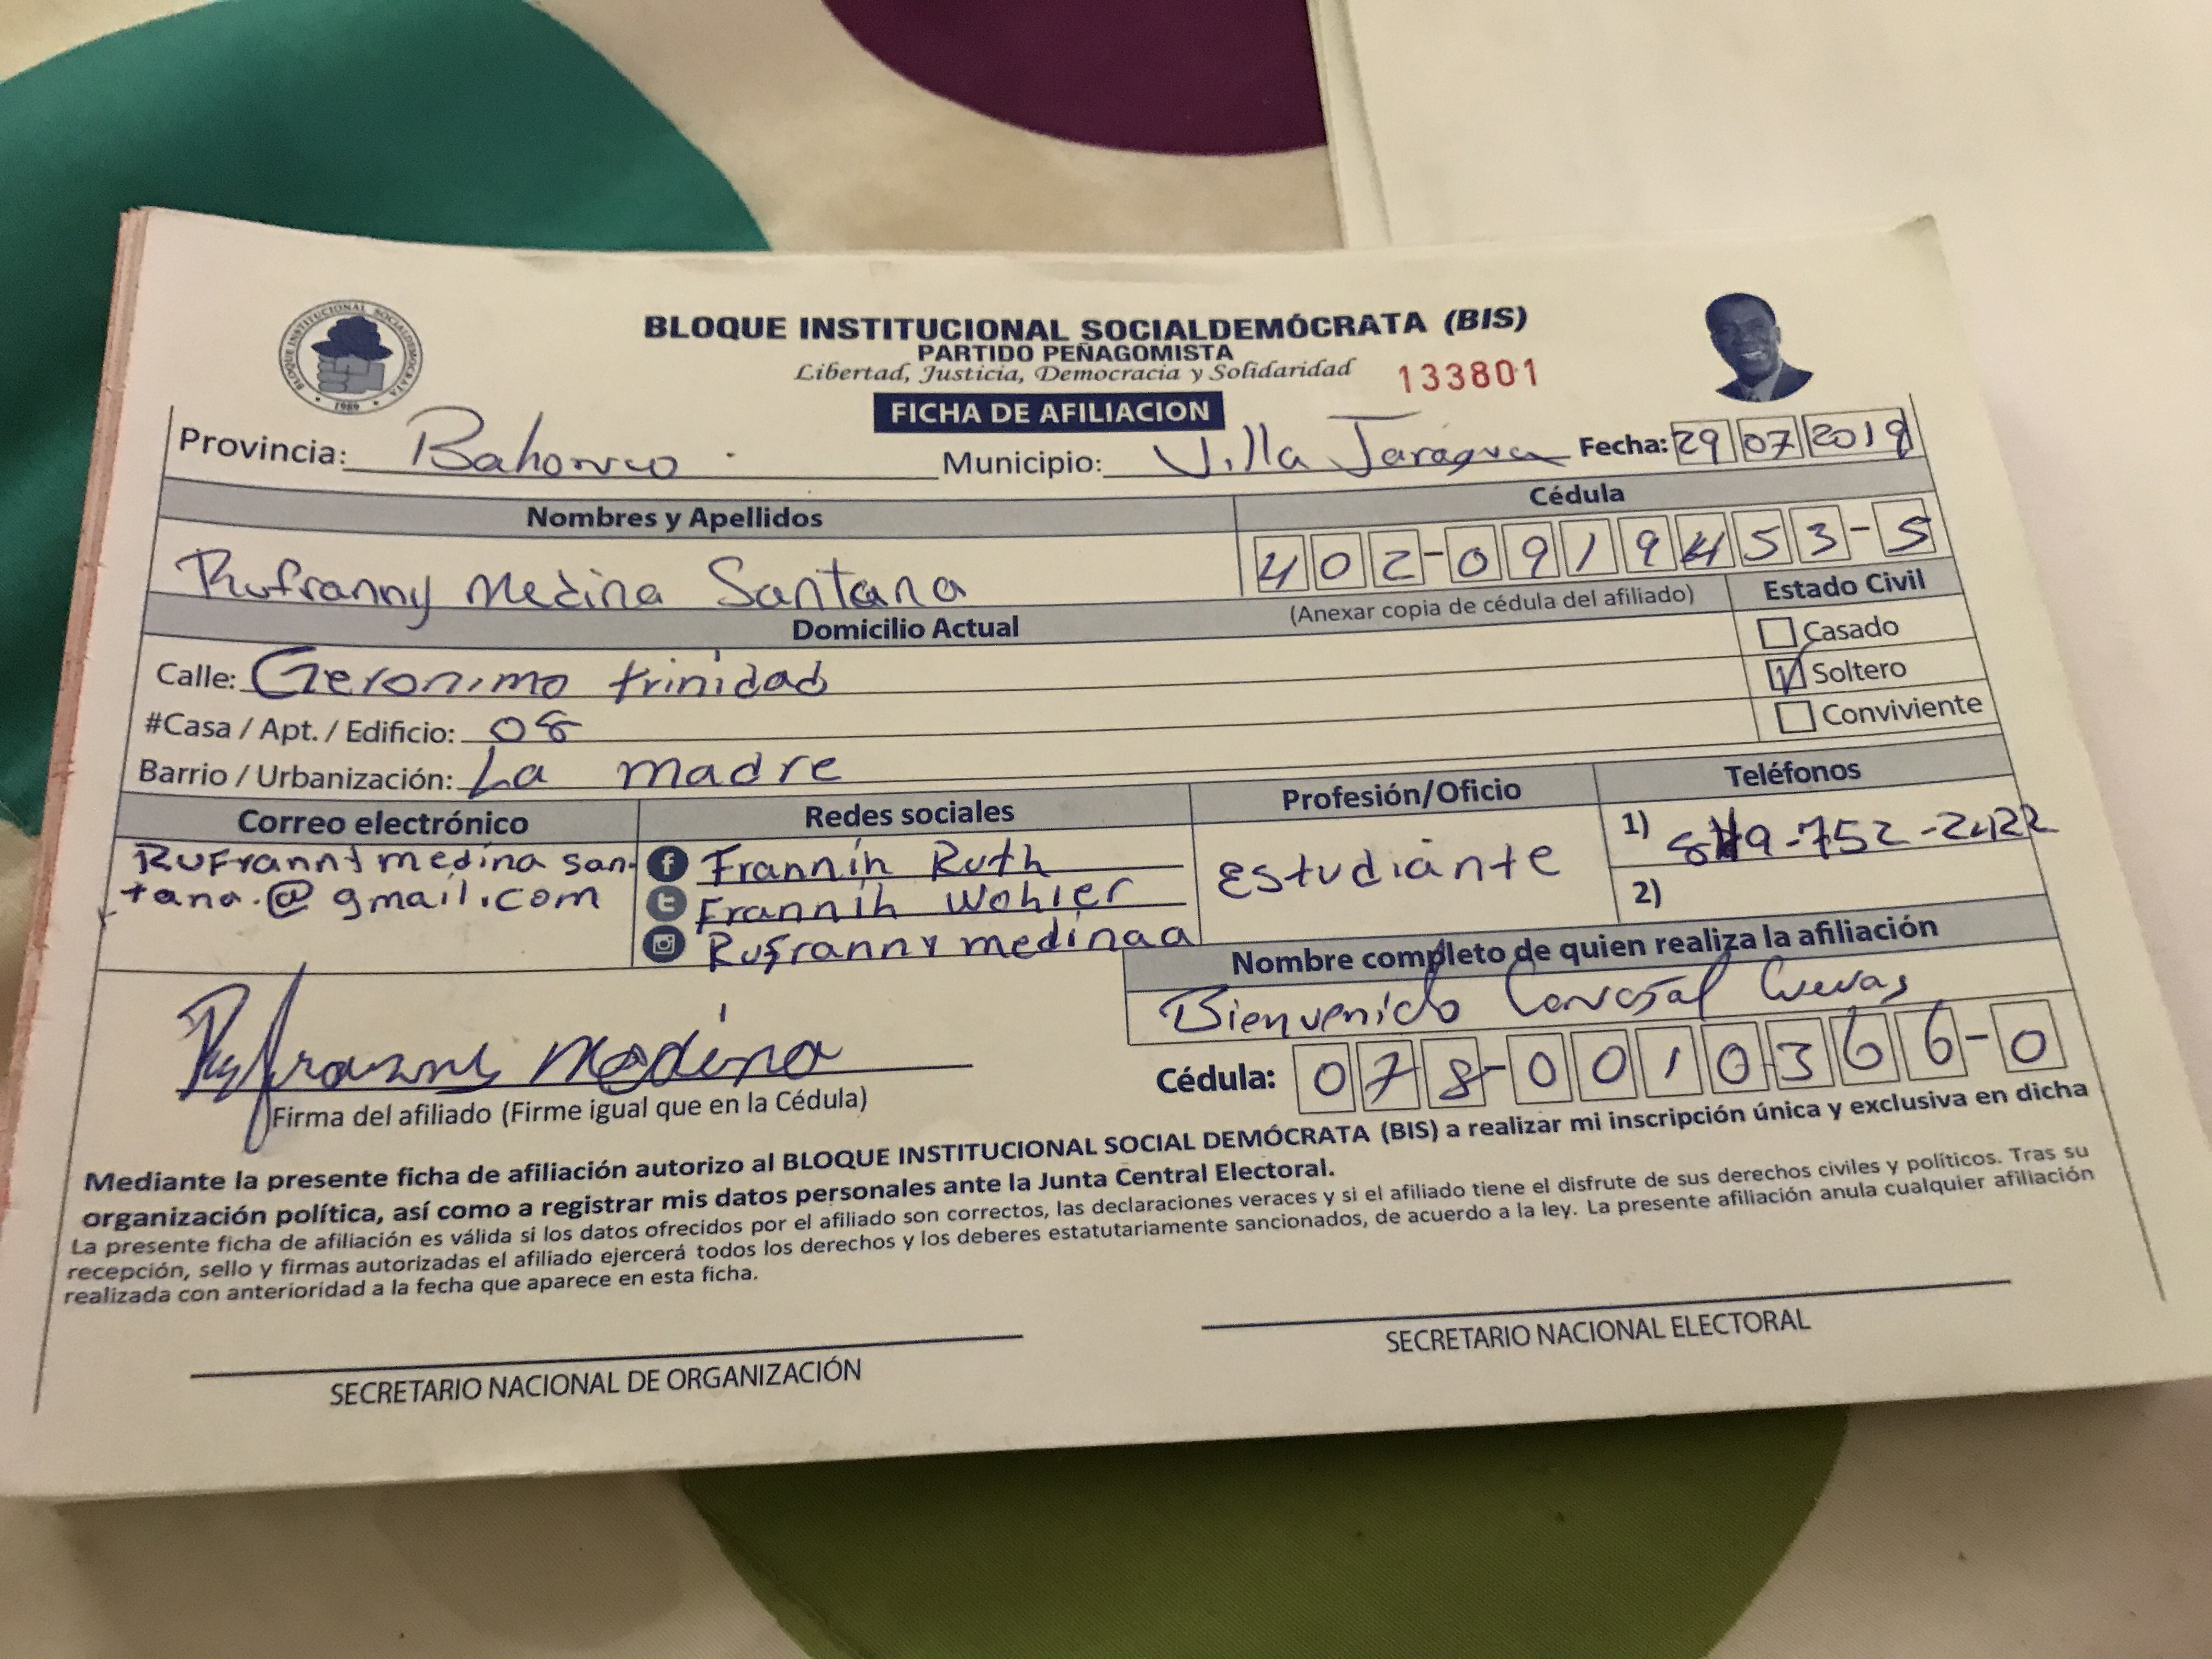 BLOQUE INSTITUCIONAL SOCIALDEMOCRATA
1989
BLOQUE INSTITUCIONAL SOCIALDEMÓCRATA (BIS)
PARTIDO PEÑAGOMISTA
Libertad, Justicia, Democracia y Solidaridad 133801
FICHA DE AFILIACION
Provincia: Bahoruco Municipio: Villa Jaragua Fecha: 29 07 2019
Nombres y Apellidos Cédula
Rufranny Medina Santana 402-0919453-5
(Anexar copia de cédula del afiliado) Estado Civil
Domicilio Actual
Casado
Calle: Geronimo trinidad
Soltero
#Casa / Apt. / Edificio: 08
Conviviente
Barrio / Urbanización: La madre
Correo electrónico Redes sociales Profesión/Oficio Teléfonos
RuFranny medina san-
tana.@gmail.com
Frannin Ruth
Frannih Wohler
Rufranny medinaa
Estudiante
1) 752
2)
Nombre completo de quien realiza la afiliación
Bienvenido Carvajal Cuevas
Cédula: 078-0010366-0
Rufranny Medina
Firma del afiliado (Firme igual que en la Cédula)
Mediante la presente ficha de afiliación autorizo al BLOQUE INSTITUCIONAL SOCIAL DEMÓCRATA (BIS) a realizar mi inscripción única y exclusiva en dicha
organización política, así como a registrar mis datos personales ante la Junta Central Electoral.
La presente ficha de afiliación es válida si los datos ofrecidos por el afiliado son correctos, las declaraciones veraces y si el afiliado tiene el disfrute de sus derechos civiles y políticos. Tras su
recepción, sello y firmas autorizadas el afiliado ejercerá todos los derechos y los deberes estatutariamente sancionados, de acuerdo a la ley. La presente afiliación anula cualquier afiliación
realizada con anterioridad a la fecha que aparece en esta ficha.
SECRETARIO NACIONAL DE ORGANIZACIÓN
SECRETARIO NACIONAL ELECTORAL